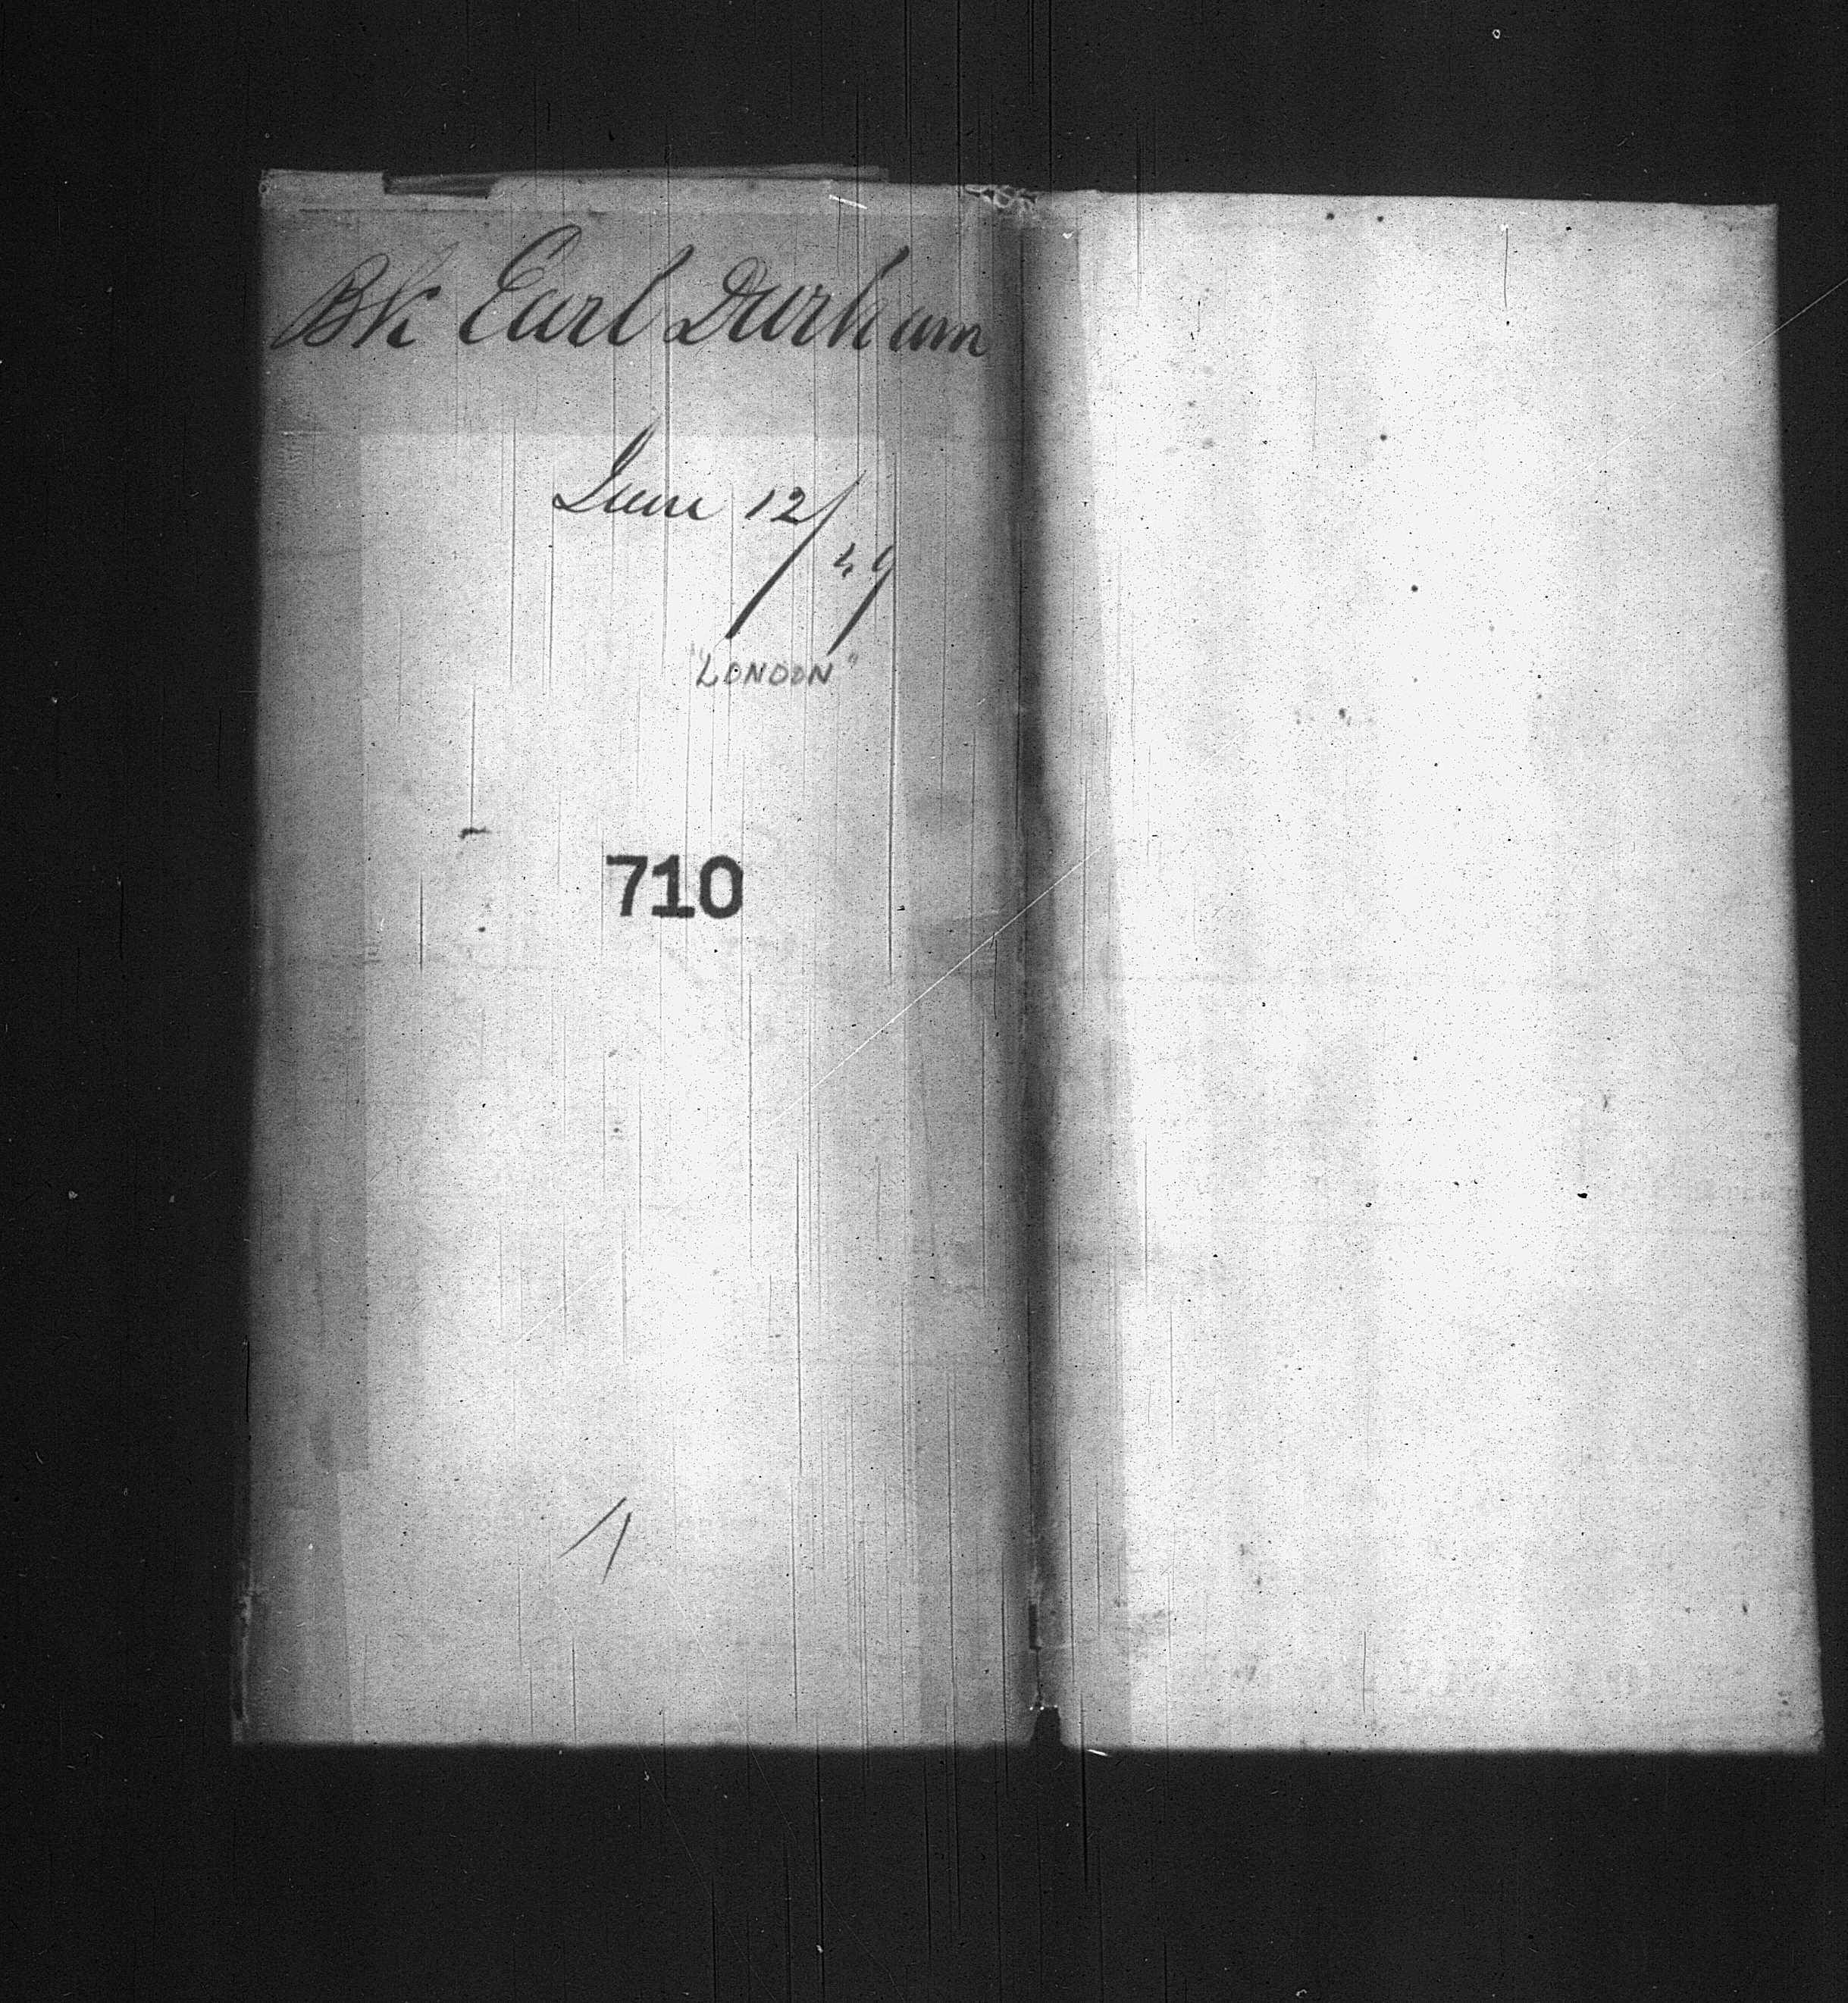 Bk Earl Durham
June 12/
49
"LONDON"
710